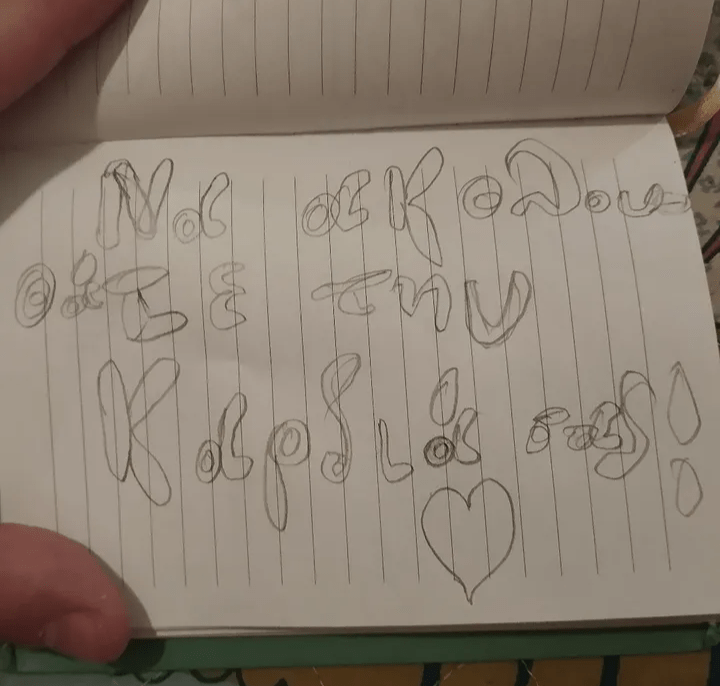 Να ακολου
θάτε την
Καρδιά σας!